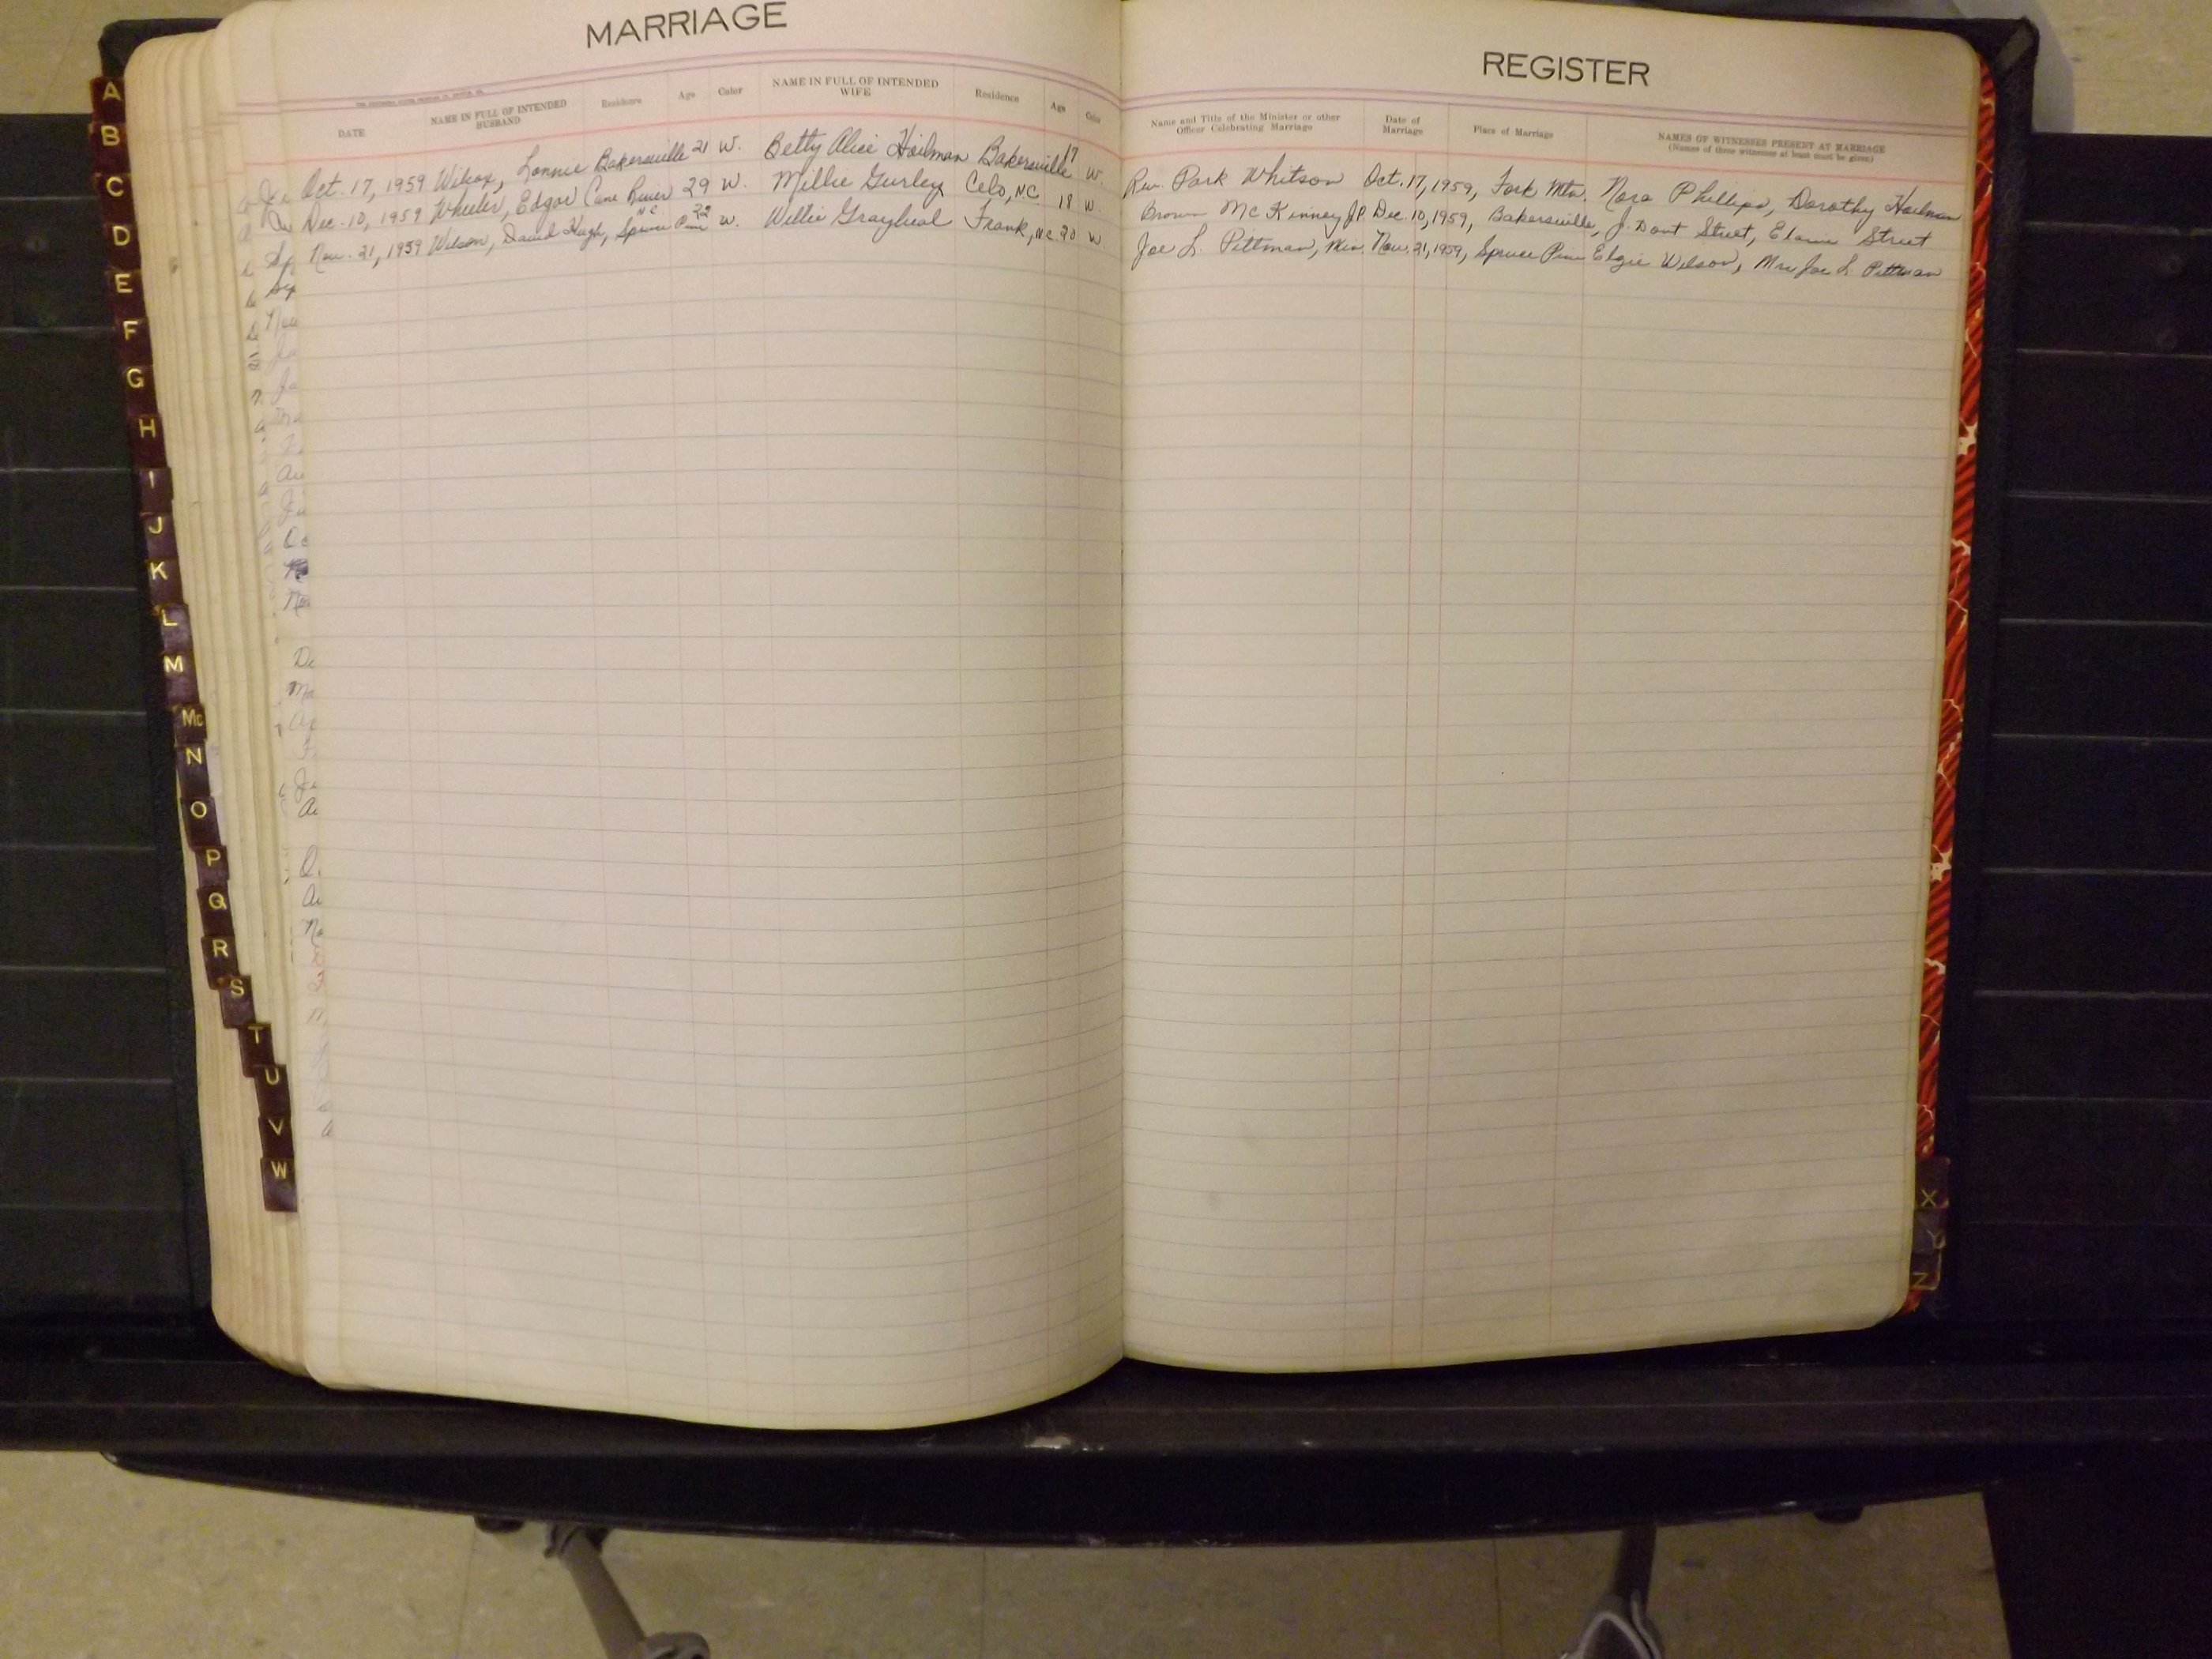 MARRIAGE
DATE NAME IN FULL OF INTENDED HUSBAND Residence Age Color NAME IN FULL OF INTENDED WIFE Residence Age Color
Oct. 17, 1959 Wilcox, Lonnie Bakersville 21 W. Betty Alice Hoilman Bakersville 17 W.
Dec. 10, 1959 Wheeler, Edgar Cane River NC 29 W. Millie Gurley Celo, NC 18 W
Nov. 21, 1959 Wilson, David Hugh, Spruce Pine 22 W. Willie Graybeal Frank, NC. 20 W
REGISTER
Name and Title of the Minister or other Officer Celebrating Marriage Date of Marriage Place of Marriage NAMES OF WITNESSES PRESENT AT MARRIAGE
(Names of three witnesses at least must be given)
Rev. Park Whitson Oct. 17, 1959, Fork Mtn. Nora Phillips, Dorothy Hoilman
Brown McKinney J.P. Dec. 10, 1959, Bakersville, J. Dont Street, Elaine Street
Joe L. Pittman, Min. Nov. 21, 1959, Spruce Pine Elzie Wilson, Mrs Joe L. Pittman
A
B
C
D
E
F
G
H
I
J
K
L
M
Mc
N
O
P
Q
R
S
T
U
V
W
X
Y
Z